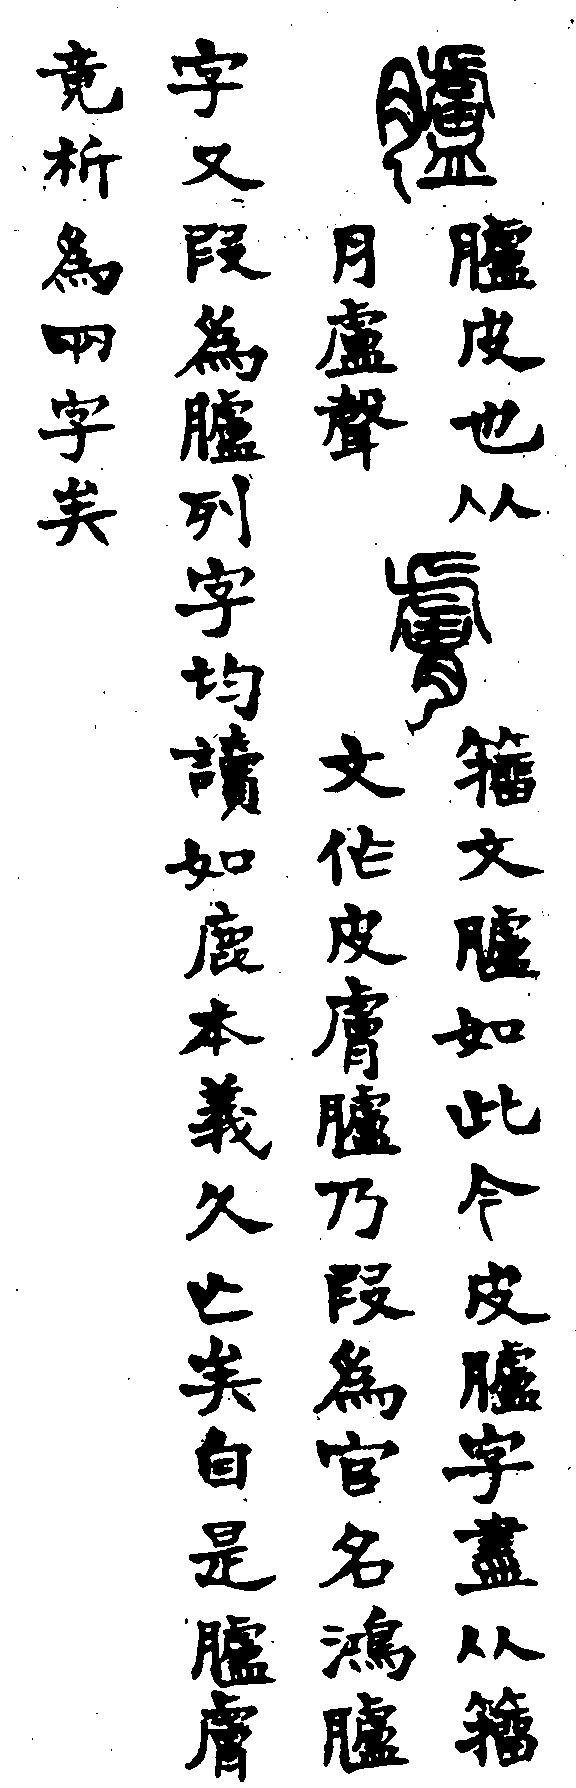 臚
臚皮也从
月盧聲
膚
籀文臚如此今皮臚字盡从籀
文作皮膚臚乃叚為官名鴻臚
字又叚為臚列字均讀如鹿本義久亡矣自是臚膚
竟析為兩字矣